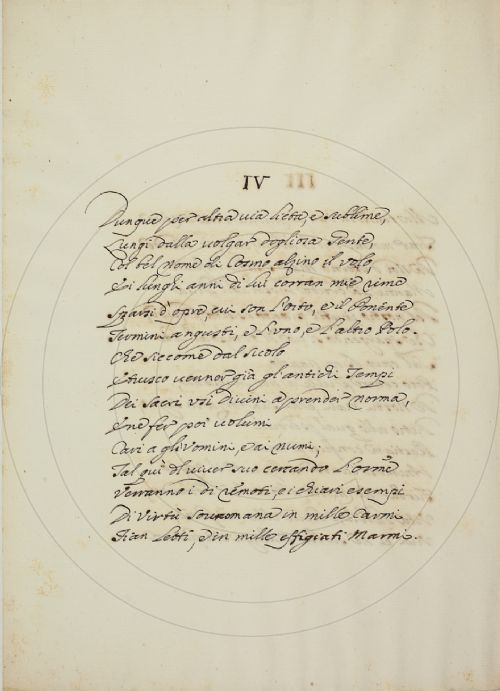 IV
Dunque per altra via lieta, e sublime,
Lungi dalla volgar dogliosa Gente,
Col bel nome di Cosmo alzino il volo,
E i lunghi anni di lui corran mie rime
Sparsi d'opre, cui son l'Orto, e il Ponente
Termini angusti, e l'uno, e l'altro Polo.
Che siccome dal secolo
Etrusco venner già gl'antichi Tempi
Dei Sacri usi Divini a prender norma,
E ne fer poi volumi
Cari a gli Vomini, e ai numi;
Tal qui di viver suo cercando l'orme
Verranno i dì remoti, e i chiari esempi
Di Virtù Sovromana in mille Carmi
Fian Letti, e in mille effigiati Marmi.